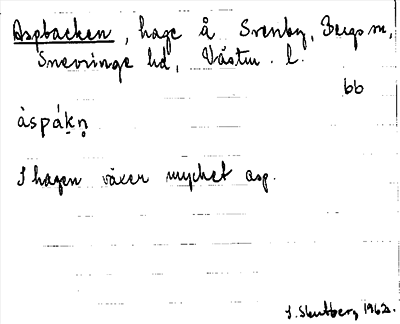 Aspbacken, hage å Svenby, Bergs sn,
Snevringe hd, Västm. l.
bb
àspákn̥
I hagen växer mycket asp.
1962.